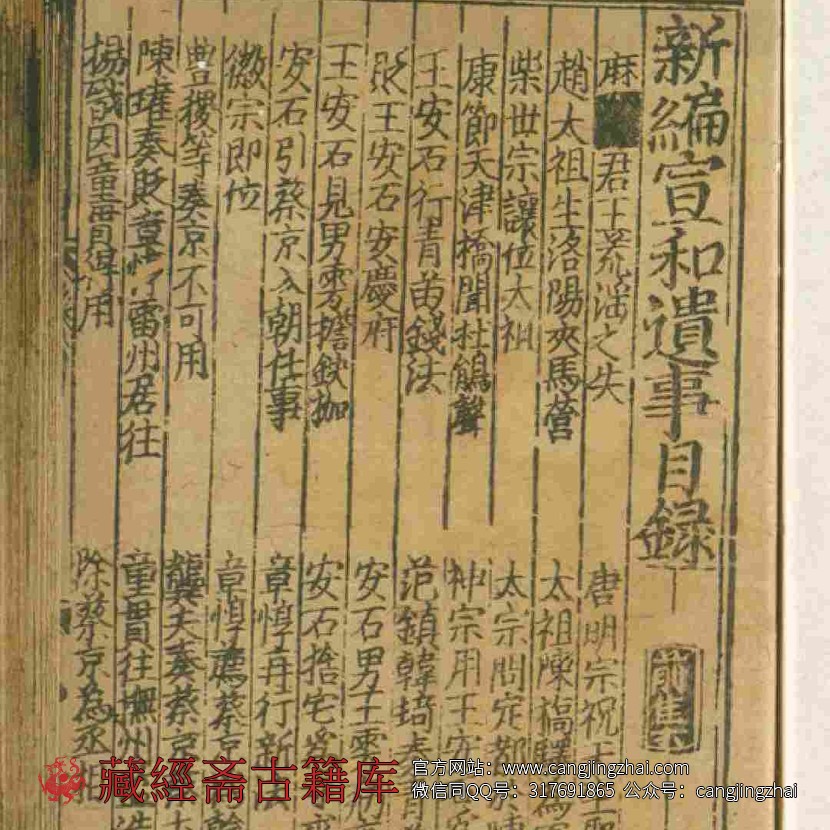 新編宣和遺事目録
前集
麻
君王荒淫之失
唐明宗祝天
趙太祖生洛陽夾馬營
太祖陳橋驛
柴世宗讓位太祖
太宗問定都
康節天津橋聞杜鵑聲
神宗用王安
王安石行青苗錢法
范鎮韓琦奏
貶王安石安慶府
安石男王雱
王安石見男雱擔鉄枷
安石捨宅為
安石引蔡京入朝仕事
章惇再行新
徽宗即位
章惇薦蔡京
豊稷等奏京不可用
龔夬奏蔡京
陳瓘奏貶章惇雷州居住
童貫往撫州
楊戩因童貫得用
除蔡京為丞相
藏經斋古籍库
官方网站：www.cangjingzhai.com
微信同QQ号：317691865 公众号：cangjingzhai